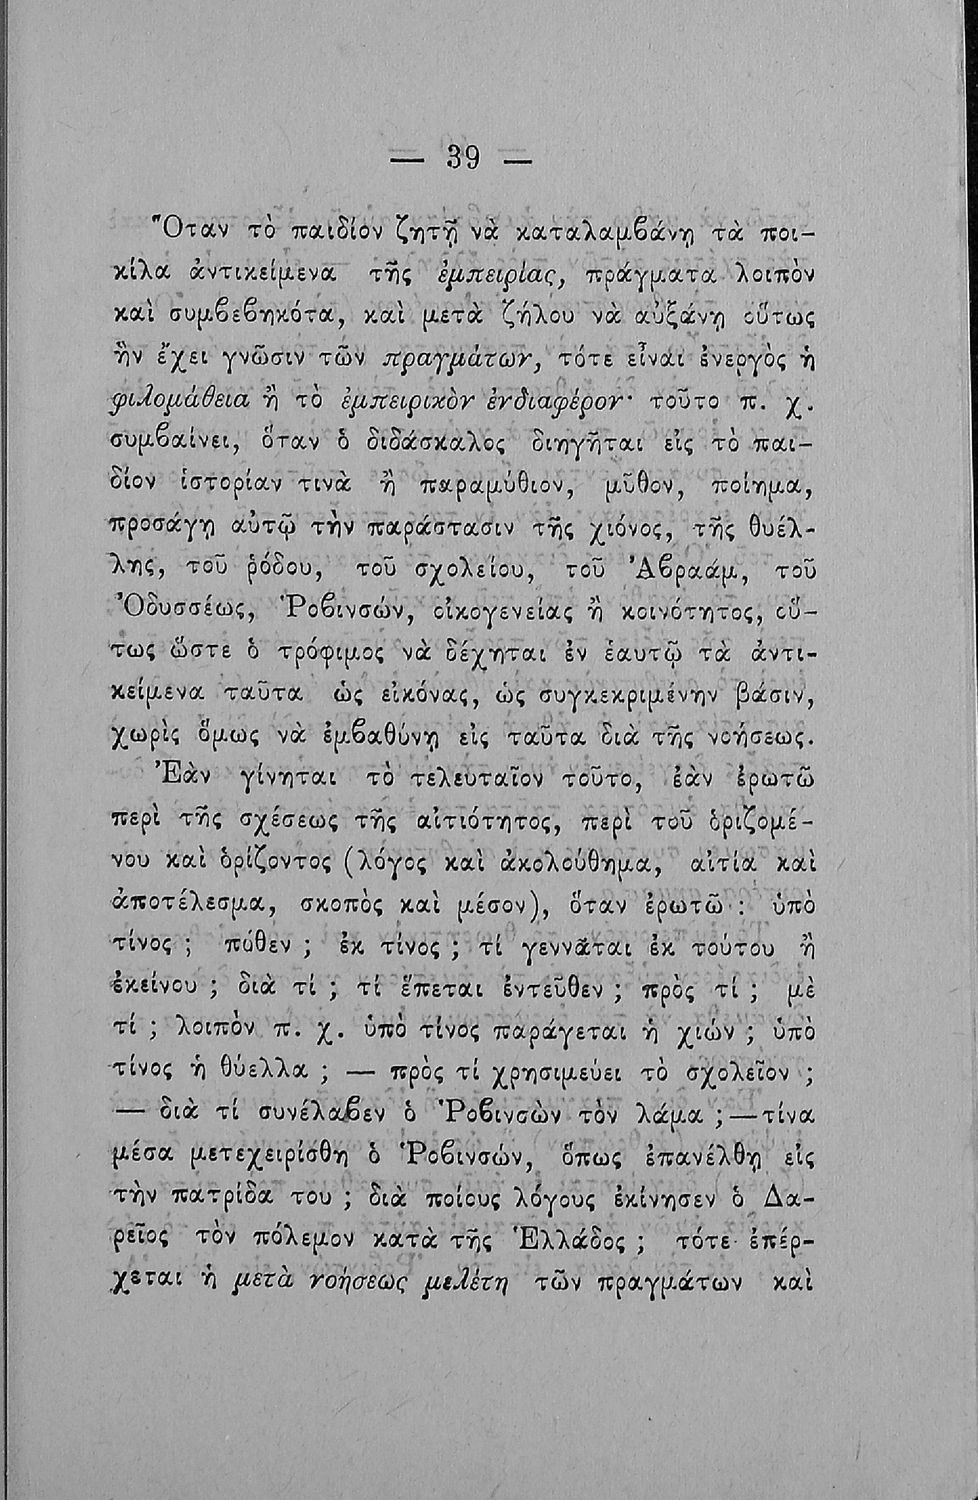 — 39 —
Ὅταν τὸ παιδίον ζητῇ νὰ καταλαμβάνῃ τὰ ποι-
κίλα ἀντικείμενα τῆς ἐμπειρίας, πράγματα λοιπὸν
καὶ συμβεβηκότα, καὶ μετὰ ζήλου νὰ αὐξάνῃ οὕτως
ἣν ἔχει γνῶσιν τῶν πραγμάτων, τότε εἶναι ἐνεργὸς ἡ
φιλομάθεια ἢ τὸ ἐμπειρικὸν ἐνδιαφέρον· τοῦτο π. χ.
συμβαίνει, ὅταν ὁ διδάσκαλος διηγῆται εἰς τὸ παι-
δίον ἱστορίαν τινὰ ἢ παραμύθιον, μῦθον, ποίημα,
προσάγῃ αὐτῷ τὴν παράστασιν τῆς χιόνος, τῆς θυέλ-
λης, τοῦ ῥόδου, τοῦ σχολείου, τοῦ Ἀβραάμ, τοῦ
Ὀδυσσέως, Ῥοβινσών, οἰκογενείας ἢ κοινότητος, οὕ-
τως ὥστε ὁ τρόφιμος νὰ δέχηται ἐν ἑαυτῷ τὰ ἀντι-
κείμενα ταῦτα ὡς εἰκόνας, ὡς συγκεκριμένην βάσιν,
χωρὶς ὅμως νὰ ἐμβαθύνῃ εἰς ταῦτα διὰ τῆς νοήσεως.
Ἐὰν γίνηται τὸ τελευταῖον τοῦτο, ἐὰν ἐρωτῶ
περὶ τῆς σχέσεως τῆς αἰτιότητος, περὶ τοῦ ὁριζομέ-
νου καὶ ὁρίζοντος (λόγος καὶ ἀκολούθημα, αἰτία καὶ
ἀποτέλεσμα, σκοπὸς καὶ μέσον), ὅταν ἐρωτῶ : ὑπὸ
τίνος ; πόθεν ; ἐκ τίνος ; τί γεννᾶται ἐκ τούτου ἢ
ἐκείνου ; διὰ τί ; τί ἕπεται ἐντεῦθεν ; πρὸς τί ; μὲ
τί ; λοιπὸν π. χ. ὑπὸ τίνος παράγεται ἡ χιών ; ὑπὸ
τίνος ἡ θύελλα ; — πρὸς τί χρησιμεύει τὸ σχολεῖον ;
— διὰ τί συνέλαβεν ὁ Ῥοβινσὼν τὸν λάμα ; — τίνα
μέσα μετεχειρίσθη ὁ Ῥοβινσών, ὅπως ἐπανέλθῃ εἰς
τὴν πατρίδα του ; διὰ ποίους λόγους ἐκίνησεν ὁ Δα-
ρεῖος τὸν πόλεμον κατὰ τῆς Ἑλλάδος ; τότε ἐπέρ-
χεται ἡ μετὰ νοήσεως μελέτη τῶν πραγμάτων καὶ